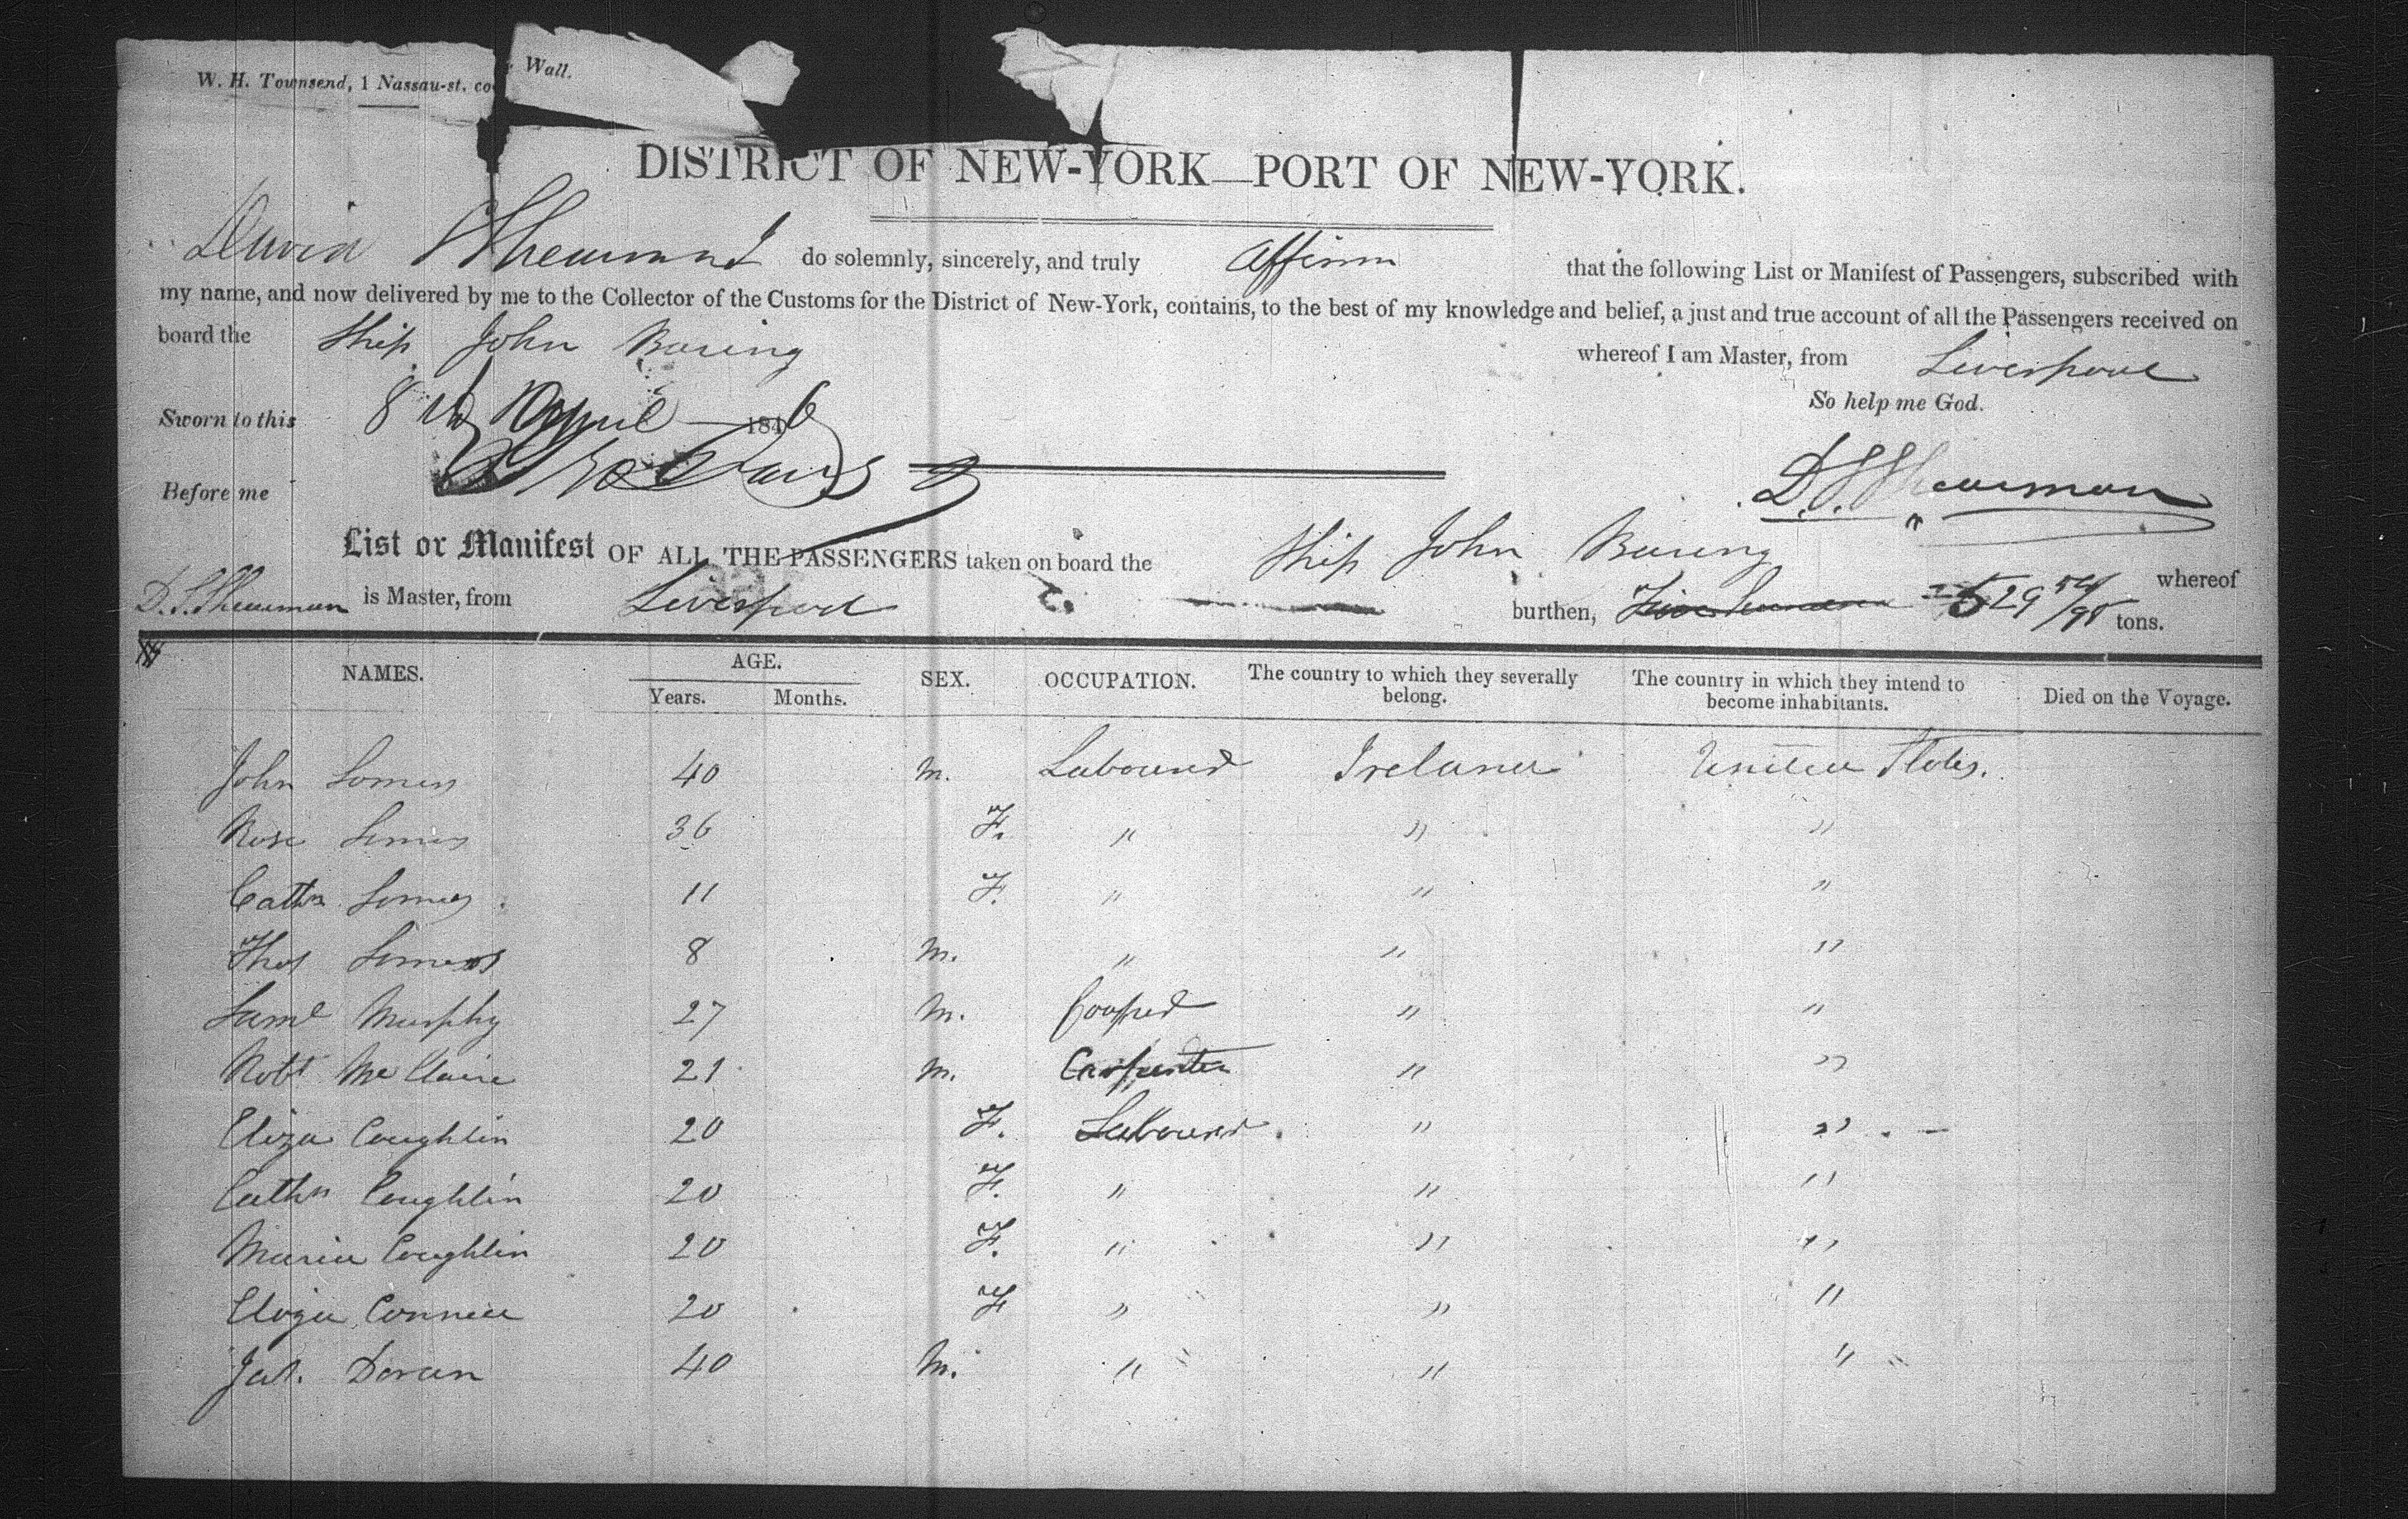 W. H. Townsend, 1 Nassau-st. co Wall.
DISTRICT OF NEW-YORK—PORT OF NEW-YORK.
David do solemnly, sincerely, and truly affirm that the following List or Manifest of Passengers, subscribed with
my name, and now delivered by me to the Collector of the Customs for the District of New-York, contains, to the best of my knowledge and belief, a just and true account of all the Passengers received on
board the Ship John Baring whereof I am Master, from Liverpool
So help me God.
Sworn to this 8th April 1846
Before me
D. S. Shearman
List or Manifest OF ALL THE PASSENGERS taken on board the Ship John Baring whereof
D. S. Shearman is Master, from Liverpool burthen, 529 54/95 tons.
NAMES. AGE. SEX. OCCUPATION. The country to which they severally belong. The country in which they intend to become inhabitants. Died on the Voyage.
Years. Months.
John Somers 40 M. Labourer Ireland United States.
Rose Somers 36 F. " " "
Cathn Somers 11 F. " " "
Thos Somers 8 M. " " "
Saml Murphy 27 M. Cooper " "
Robt McClaire 21 M. Carpenter " "
Eliza Coughlin 20 F. Labourer. " "
Cathn Coughlin 20 F. " " "
Maria Coughlin 20 F. " " "
Eliza Connell 20 F " " "
Jas. Doran 40 M. " " "